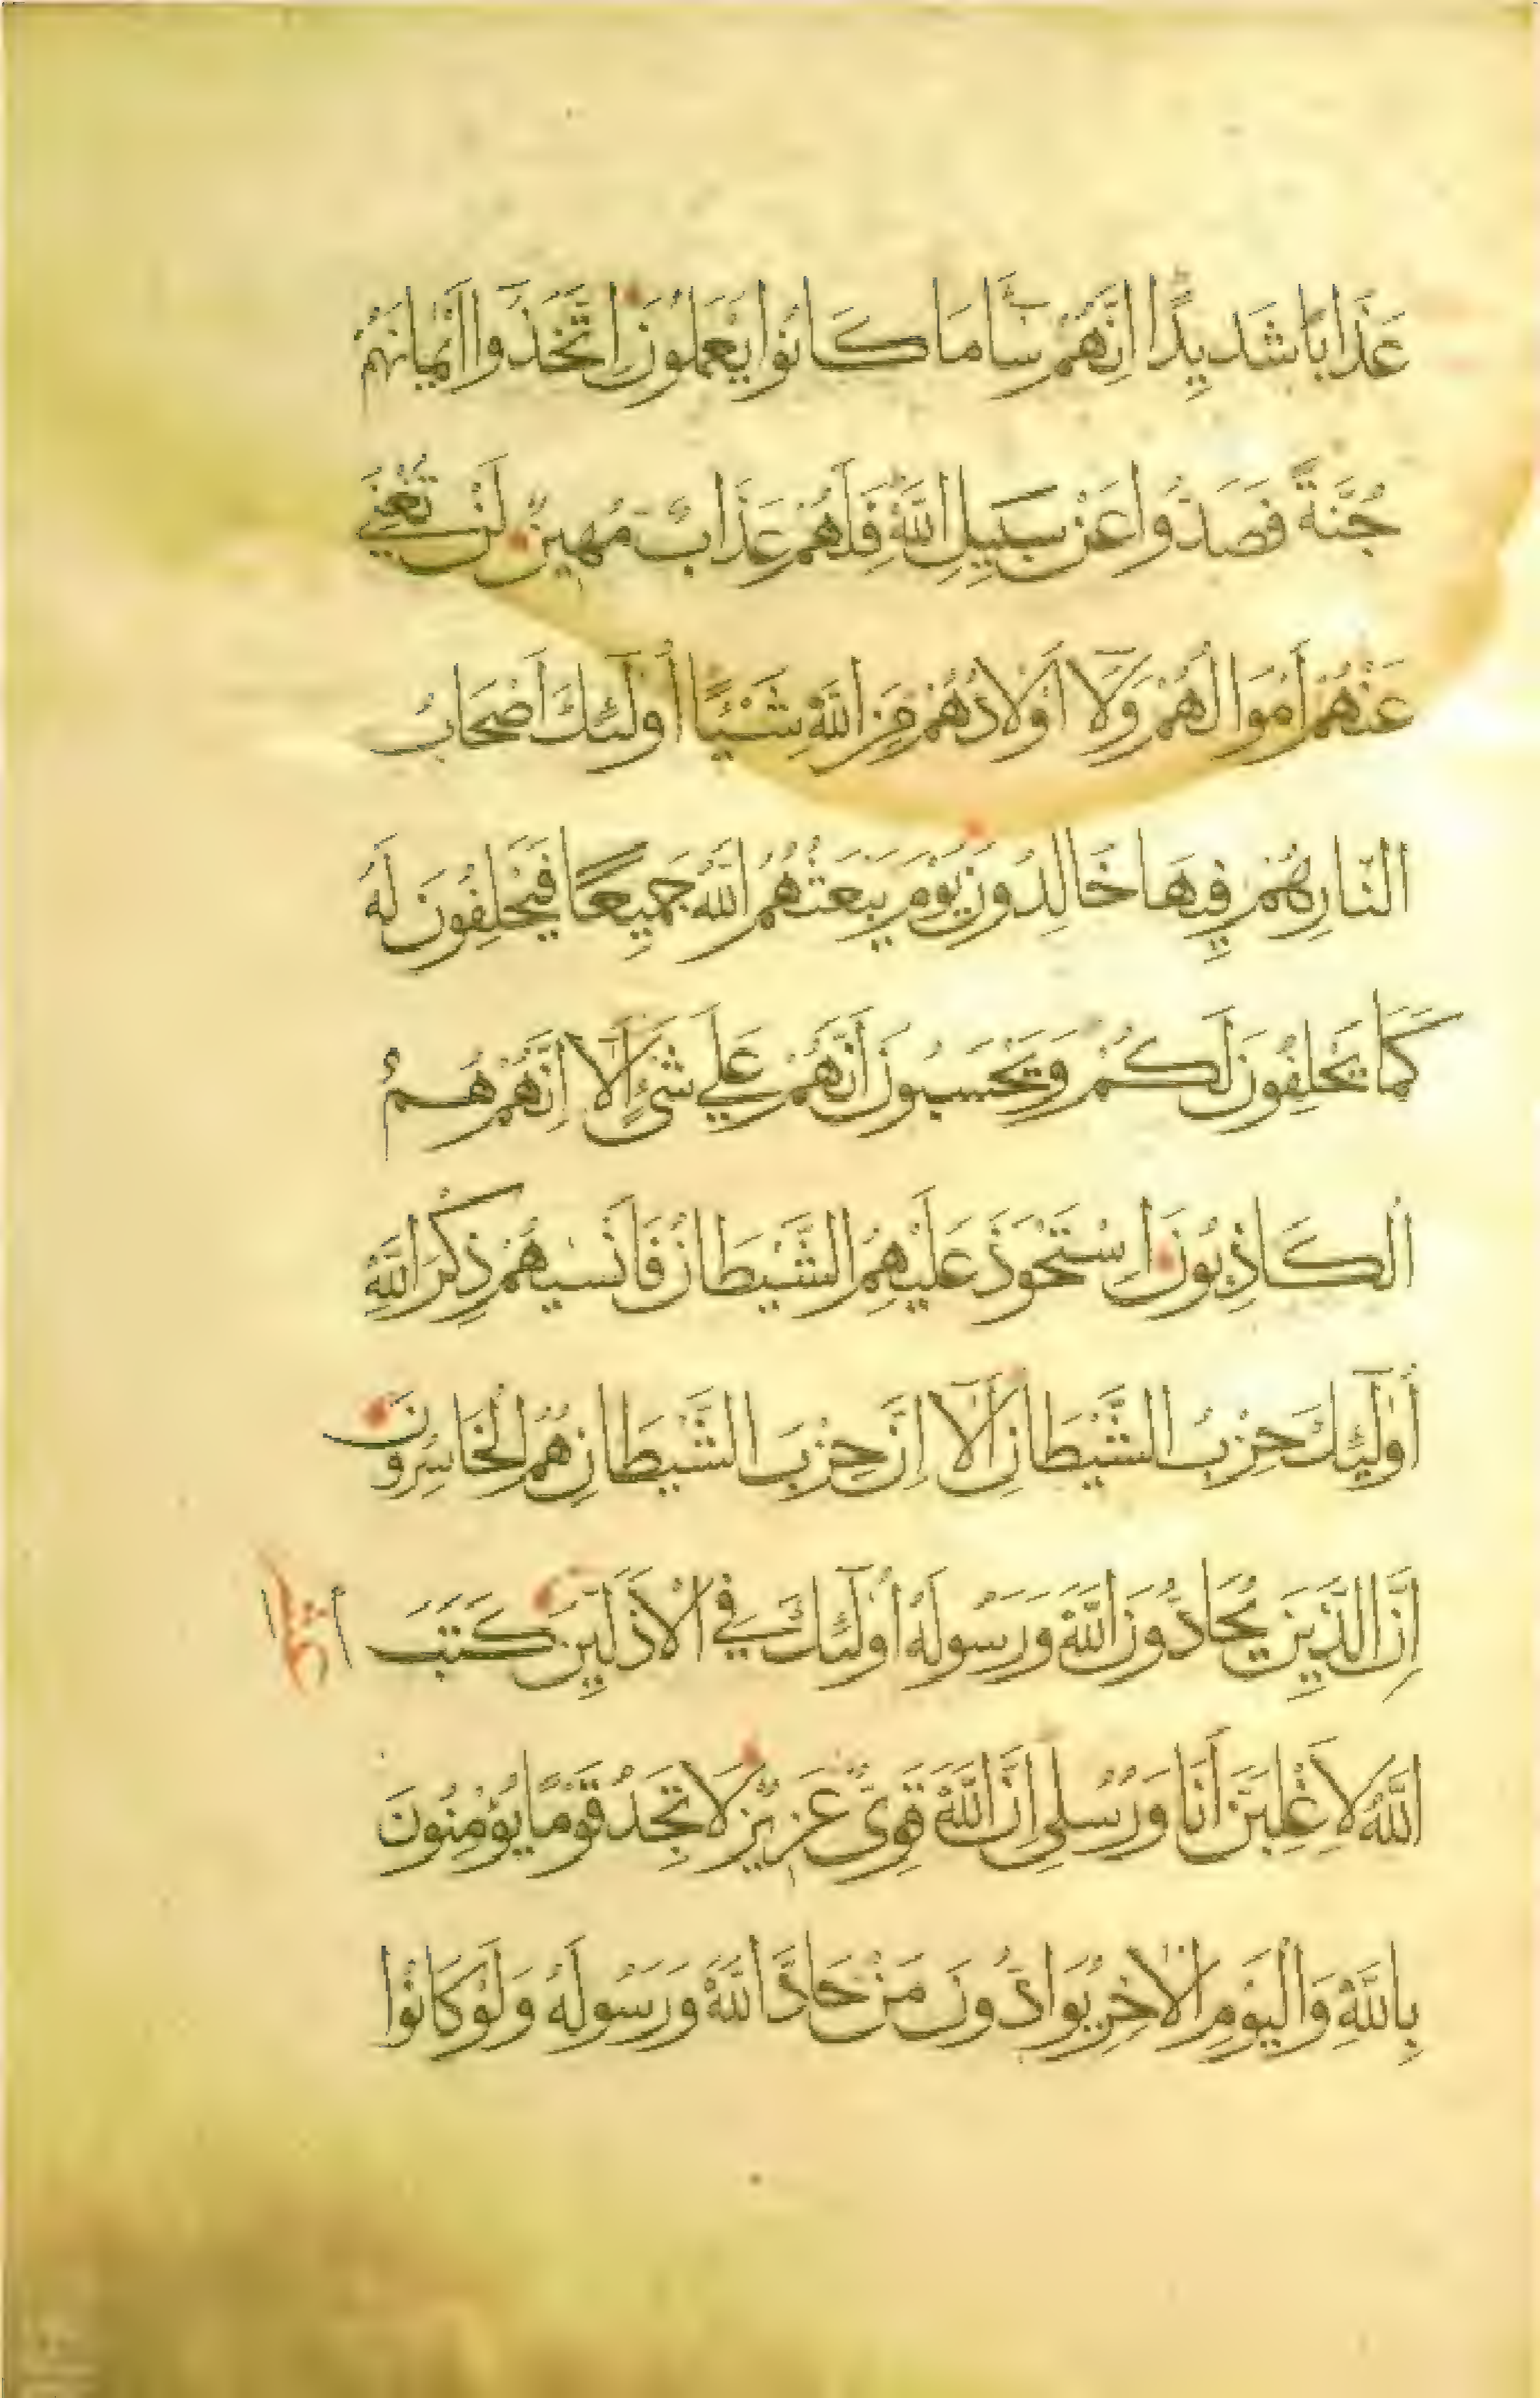 عَذَابًا شَدِيدًا اِنَّهُمْ سَآءَ مَا كَانُوا يَعْمَلُونَ اِتَّخَذُوا اَيْمَانَهُمْ
جُنَّةً فَصَدُّوا عَنْ سَبِيلِ اللّٰهِ فَلَهُمْ عَذَابٌ مُهِينٌ لَنْ تُغْنِيَ
عَنْهُمْ اَمْوَالُهُمْ وَلَا اَوْلَادُهُمْ مِنَ اللّٰهِ شَيْئًا اُولٰٓئِكَ اَصْحَابُ
النَّارِ هُمْ فِيهَا خَالِدُونَ يَوْمَ يَبْعَثُهُمُ اللّٰهُ جَمِيعًا فَيَحْلِفُونَ لَهُ
كَمَا يَحْلِفُونَ لَكُمْ وَيَحْسَبُونَ اَنَّهُمْ عَلٰي شَيْءٍ اَلَا اِنَّهُمْ هُمُ
الْكَاذِبُونَ اِسْتَحْوَذَ عَلَيْهِمُ الشَّيْطَانُ فَاَنْسٰيهُمْ ذِكْرَ اللّٰهِ
اُولٰٓئِكَ حِزْبُ الشَّيْطَانِ اَلَا اِنَّ حِزْبَ الشَّيْطَانِ هُمُ الْخَاسِرُونَ
اِنَّ الَّذِينَ يُحَادُّونَ اللّٰهَ وَرَسُولَهُ اُولٰٓئِكَ فِي الْاَذَلِّينَ كَتَبَ
اللّٰهُ لَاَغْلِبَنَّ اَنَا وَرُسُلِي اِنَّ اللّٰهَ قَوِيٌّ عَزِيزٌ لَا تَجِدُ قَوْمًا يُؤْمِنُونَ
بِاللّٰهِ وَالْيَوْمِ الْاٰخِرِ يُوَادُّونَ مَنْ حَادَّ اللّٰهَ وَرَسُولَهُ وَلَوْ كَانُوا